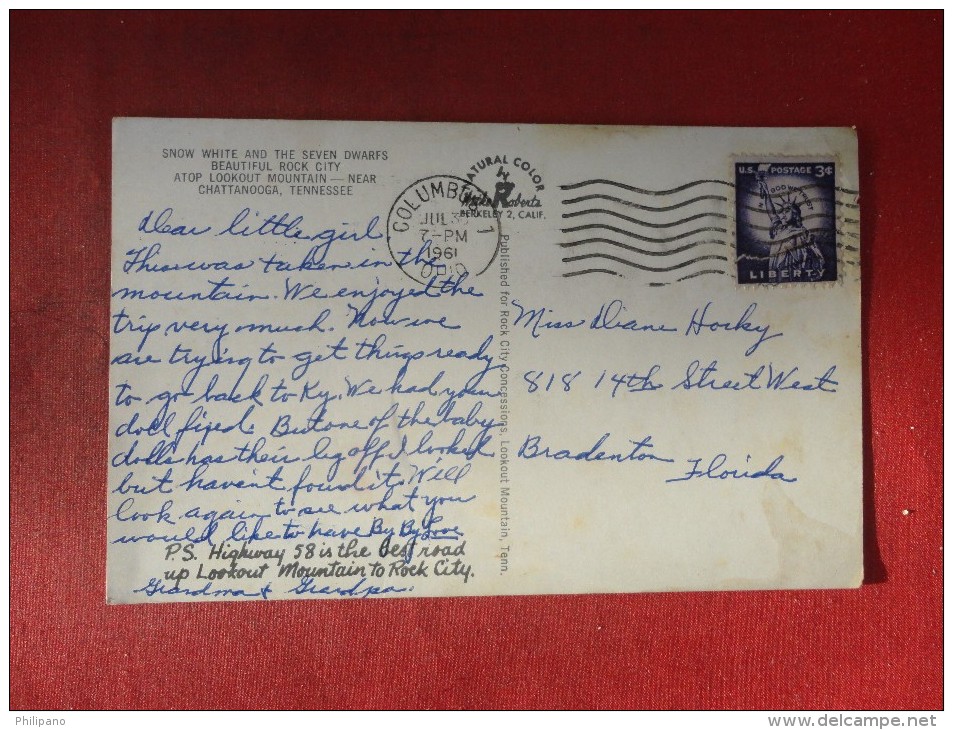 SNOW WHITE AND THE SEVEN DWARFS
BEAUTIFUL ROCK CITY
ATOP LOOKOUT MOUNTAIN — NEAR
CHATTANOOGA, TENNESSEE
Dear little girl
This was taken in the
mountain. We enjoyed the
trip very much. Now we
are trying to get things ready
to go back to Ky. We had your
doll fixed. But one of the baby
dolls has their leg off. I looked
but havent found it. Will
look again to see what you
would like to have By By Love
P.S. Highway 58 is the best road
up Lookout Mountain to Rock City.
Grandma & Grandpa.
NATURAL COLOR
Mike Roberts
BERKELEY 2, CALIF.
COLUMBUS 1
JUL 3
7-PM
1961
OHIO
Published for Rock City Concessions, Lookout Mountain, Tenn.
U.S. POSTAGE 3¢
IN GOD WE TRUST
LIBERTY
Miss Diane Hocky
818 14th Street West
Bradenton
Florida
Philipano
www.delcampe.net